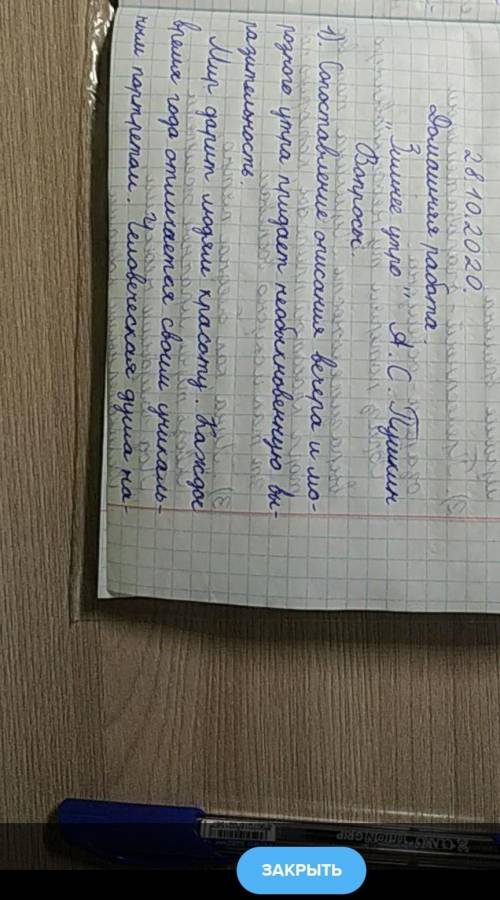 28.10.2020.
Домашняя работа.
„Зимнее утро" А.С. Пушкин
Вопросы
1). Сопоставление описания вечера и мо-
розного утра придает необыкновенную вы-
разительность.
Мир дарит людям красоту. Каждое
время года отличается своим уникаль-
ным портретом. Человеческая душа на-
ЗАКРЫТЬ